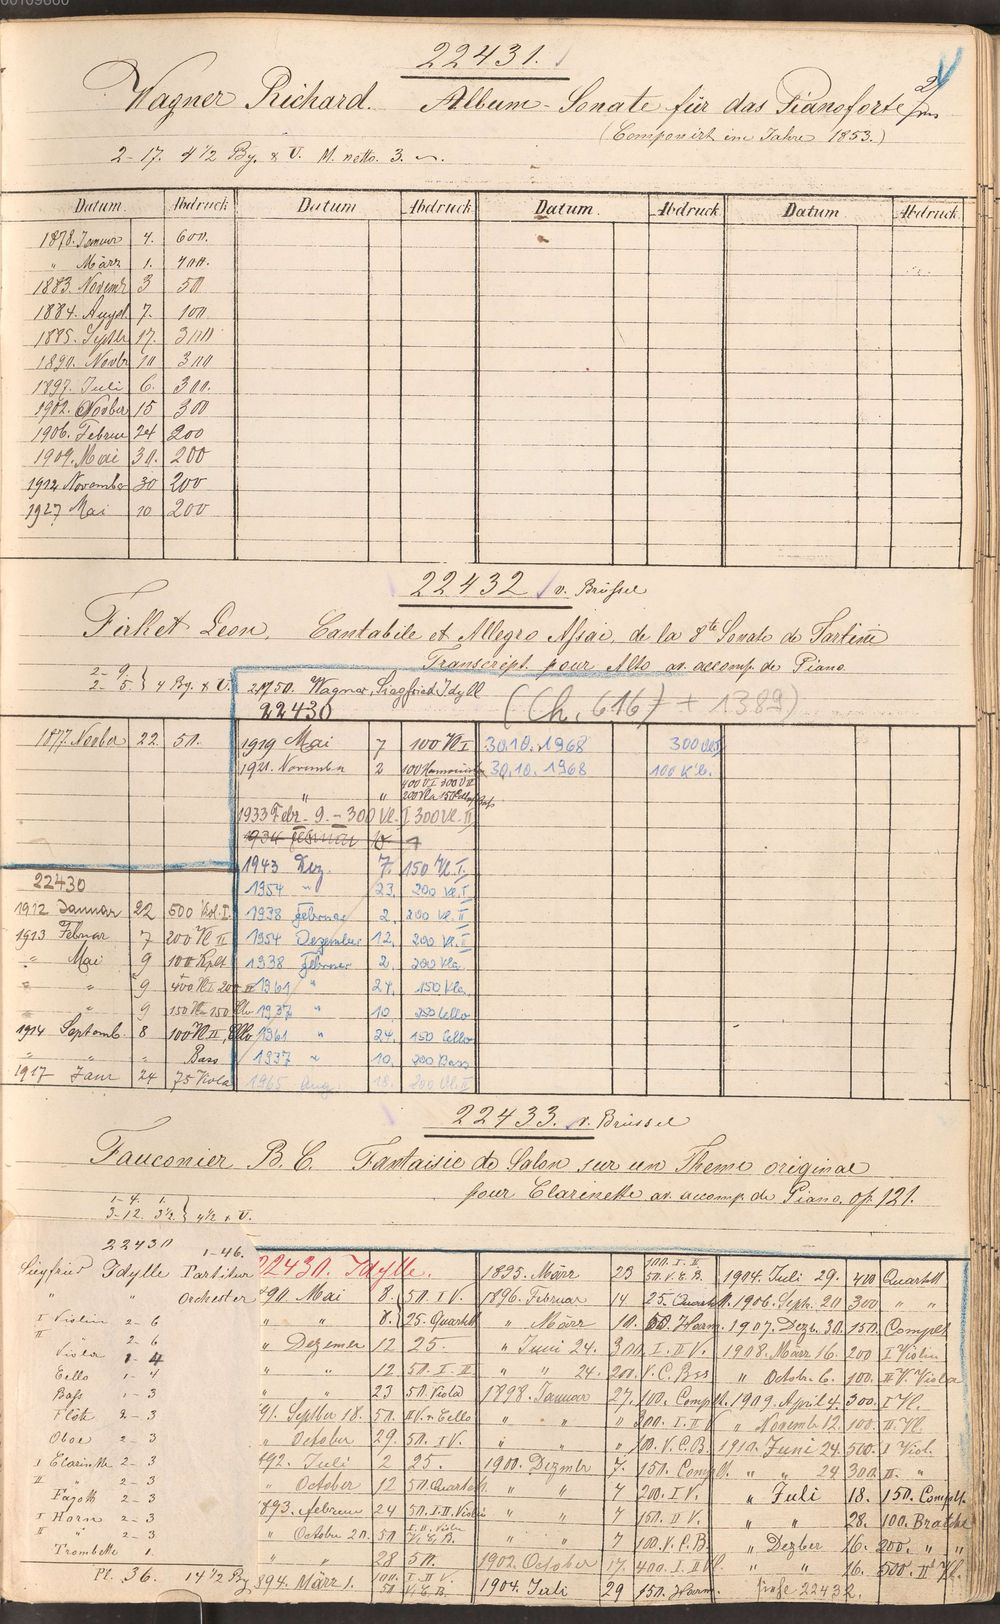 00109600
22431.
Wagner Richard. Album-Sonate für das Pianoforte
(Componirt im Jahre 1853.)
2-17. 4 1/2 Bg. & U. M. netto. 3.
Datum. Abdruck Datum Abdruck Datum. Abdruck Datum Abdruck
1878. Januar 4. 600.
" März 1.
1883. Novembr 3 50
1884. August 7. 100
1885. Septbr 17. 300
1890. Novbr 10 300
1897. Juli 6. 300.
1902. Novber 15 300
1906. Februar 24 200
1909. Mai 30. 200
1912 November 30 200
1927 Mai 10 200
22432 v. Brüssel
Firket Leon. Cantabile et Allegro Assai, de la 8te Sonate de Tartini
Transcript. pour Alto av. accomp. de Piano
2-9.
2-5. } 4 Bg. & U.
Wagner, Siegfried Idyll
22430
(Ch. 616) + 1389)
1877. Novbr 22. 50.
1919 Mai 7 100 Vl I
30.10.1968 300
1921. November 2
30.10.1968 100
" "
1933 Febr. 9. - 300 Vl. I 300 Vl. II
1934 Februar
1943 Dez. 7. 150 Vl. I.
1954 " 23. 200 Vl. I
1938 Februar 2. 200 Vl. II
1954 Dezember 12. 200 Vl. II
1938 Februar 2. 200 Vla
1961 " 24. 150 Vla.
1937 " 10. 200 Cello
1961 " 24. 150 Cello
1937 " 10. 200 Bass
1965 Aug. 18. 200 Vl. II
22430
1912 Januar 22 500 Viol. I.
1913 Februar 7 200 Vl II
" Mai 9 100 Kplt
" " 9 400 Vl I 200 II
" " 9 150 Vla 150 Clo
1914 Septemb. 8 100 Vl II, Cllo
" " " Bass
1917 Janr 24 75 Viola
22433. v. Brüssel
Fauconier B. C. Fantaisie de Salon sur un Theme original
pour Clarinette av. accomp. de Piano. op. 121.
1-4. 1.
3-12. 3 1/2. } 4 1/2 & U.
22430
1-46.
Siegfried Idylle Partitur
" " Orchester
I Violin 2-6
II " 2-6
Viola 1-4
Cello 1-4
Bass 1-3
Flöte 2-3
Oboe 2-3
I Clarinette 2-3
II " 2-3
Fagott 2-3
I Horn 2-3
II " 2-3
Trombette 1.
Pl. 36. 14 1/2 Bg
22430. Idylle.
90. Mai 8. 50. I V.
" " 8. 25. Quartett
" Dezember 12 25.
" " 12 50. I-II
" " 23 50. Viola
91. Septber 18. 50. II V. & Cello
" October 29. 50. I V.
892. Juli 2 25.
" October 12 50. Quartett
893. Februar 24 50. I-II. Violin
" October 20. 50 I. II. Violin V. C. B.
" " 28 50.
894. März 1. 100. I-II V. 50 V. C. B.
1895. März 23 100. I. II 50. V. C. B.
1896. Februar 14 25. Quartett.
" März 10. 50. Harm.
" Juni 24. 300. I. II V.
" " 24. 200. V. C. Bss
1898. Januar 27. 100. Complt.
" " " 300. I-II V
" " " 100. V. C. B.
1900. Dezmbr 7. 150. Complt.
" " 7 200. I V.
" " 7 150. II V.
" " 7 100. V. C. B.
1902. October 17. 400. I II Vl.
1904. Juli 29 150. Harm.
1904. Juli 29. 400 Quartett
1906. Septr. 20. 300. " "
1907. Dezbr. 30. 150. Complt.
1908. März 16. 200 I Violin
" Octobr. 6. 100. II V. Viola
1909. April 4. 300. I Vl.
" Novembr 12. 100. II. Vl.
1910. Juni 24. 500. I Viol.
" " 24 300. II. "
" Juli 18. 150. Complt.
" " 28. 100. Bratsche
" Dezber 16. 200. " "
" " 16. 500. II Vl.
siehe 22432.